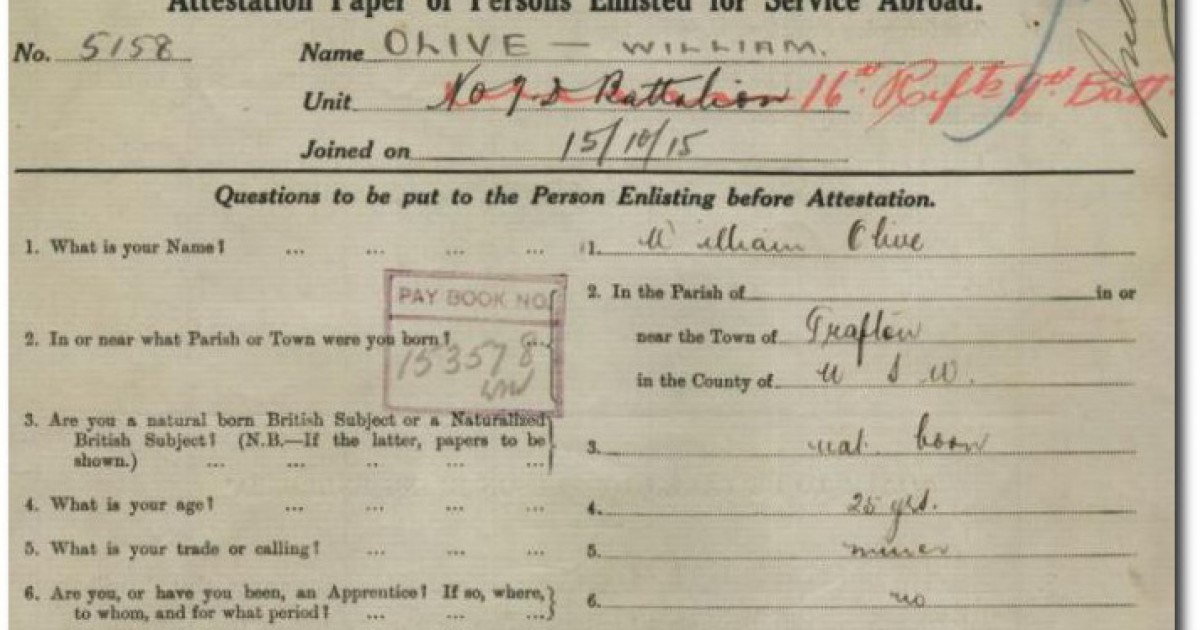 Attestation Paper of Persons Enlisted for Service Abroad.
No. 5158 Name OLIVE — WILLIAM.
Unit Battalion 16th Rfts 9th Batt.
Joined on 15/10/15
Questions to be put to the Person Enlisting before Attestation.
1. What is your Name? ... ... ... ... 1. William Olive
PAY BOOK NO.
153578
2. In the Parish of in or
2. In or near what Parish or Town were you born? near the Town of Grafton
in the County of N S W.
3. Are you a natural born British Subject or a Naturalized
British Subject? (N.B.—If the latter, papers to be 3. nat. born
shown.) ... ... .. ... ...
4. What is your age? ... ... ... ... 4. 25 yrs.
5. What is your trade or calling? ... ... ... 5. miner
6. Are you, or have you been, an Apprentice? If so, where, 6. no
to whom, and for what period? ... ... ...